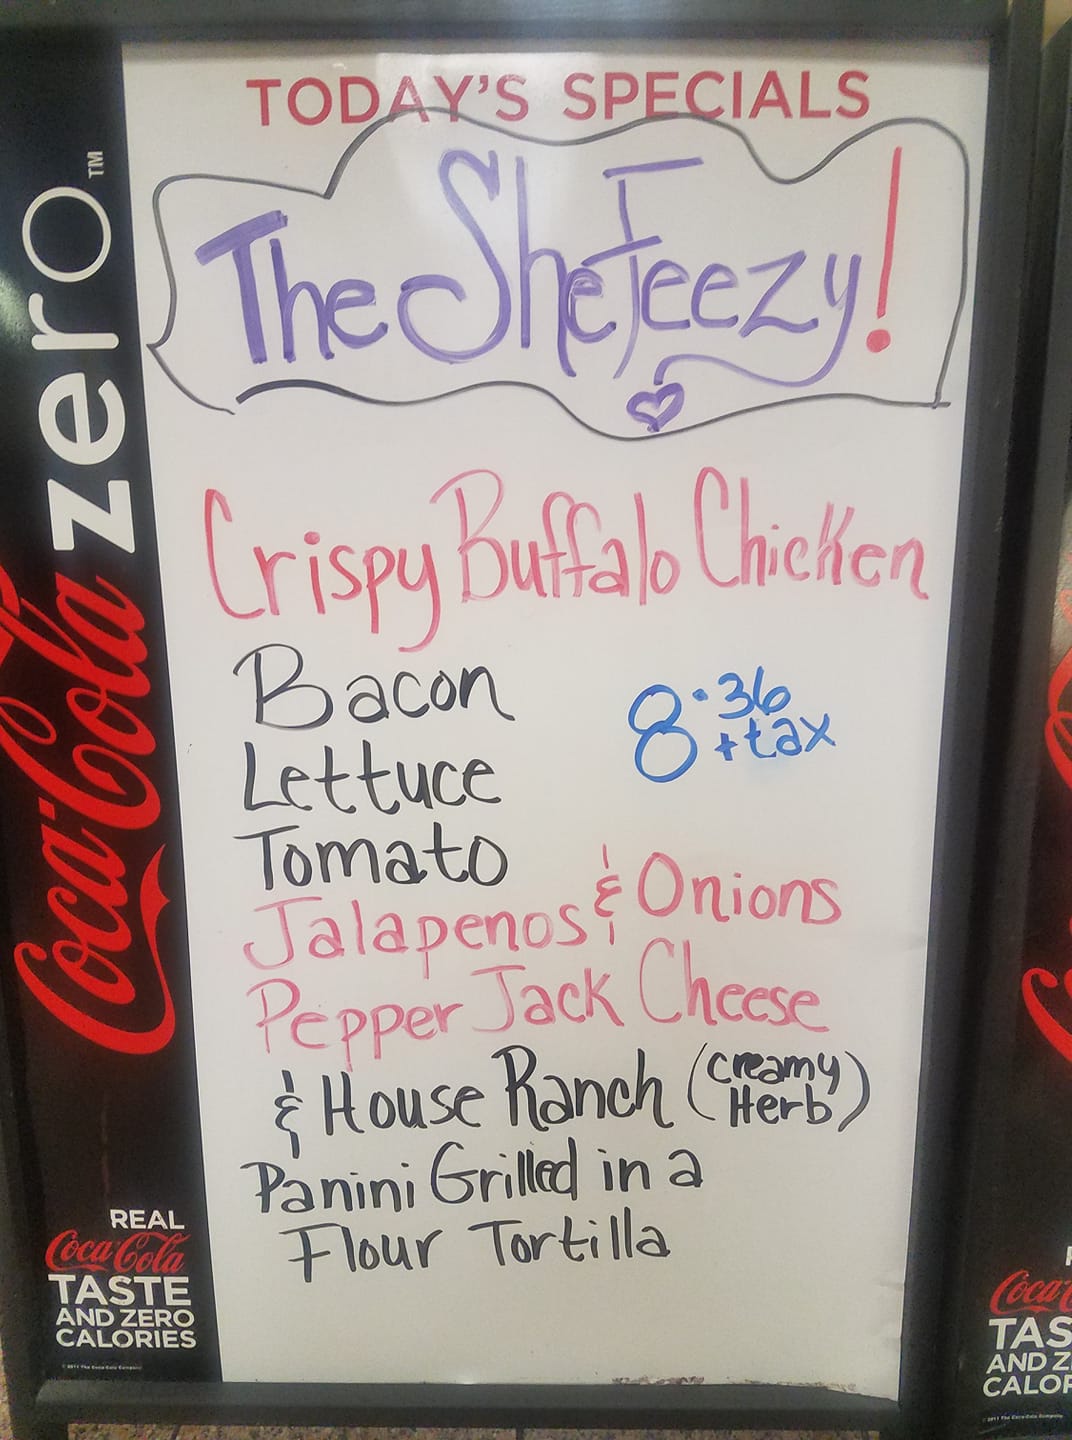 TODAY'S SPECIALS
The SheFeezy!
Crispy Buffalo Chicken
Bacon
Lettuce
8.36
+tax
Tomato
Jalapenos & Onions
Pepper Jack Cheese
& House Ranch (Creamy Herb)
Panini Grilled in a
Flour Tortilla
Coca-Cola zero™
REAL
Coca-Cola
TASTE
AND ZERO
CALORIES
© 2011 The Coca-Cola Company
Coca
TAS
AND Z
CALOR
© 2011 The Coca-Cola Company